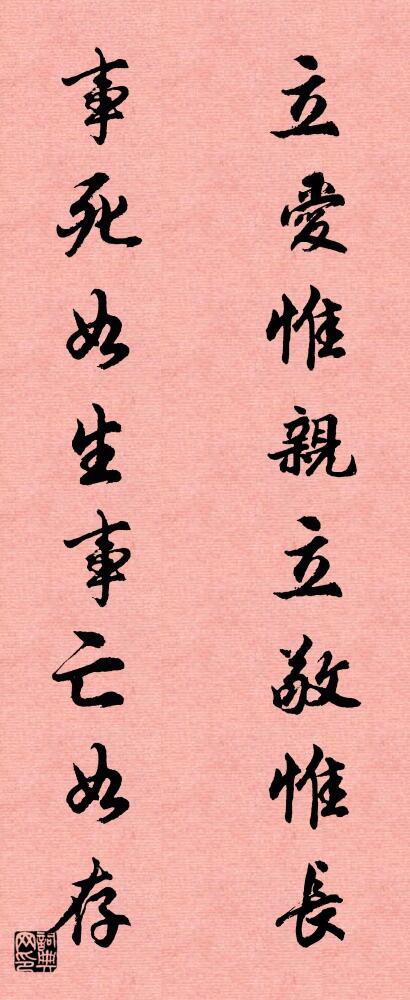 立愛惟親立敬惟長
事死如生事亡如存
詞典網印